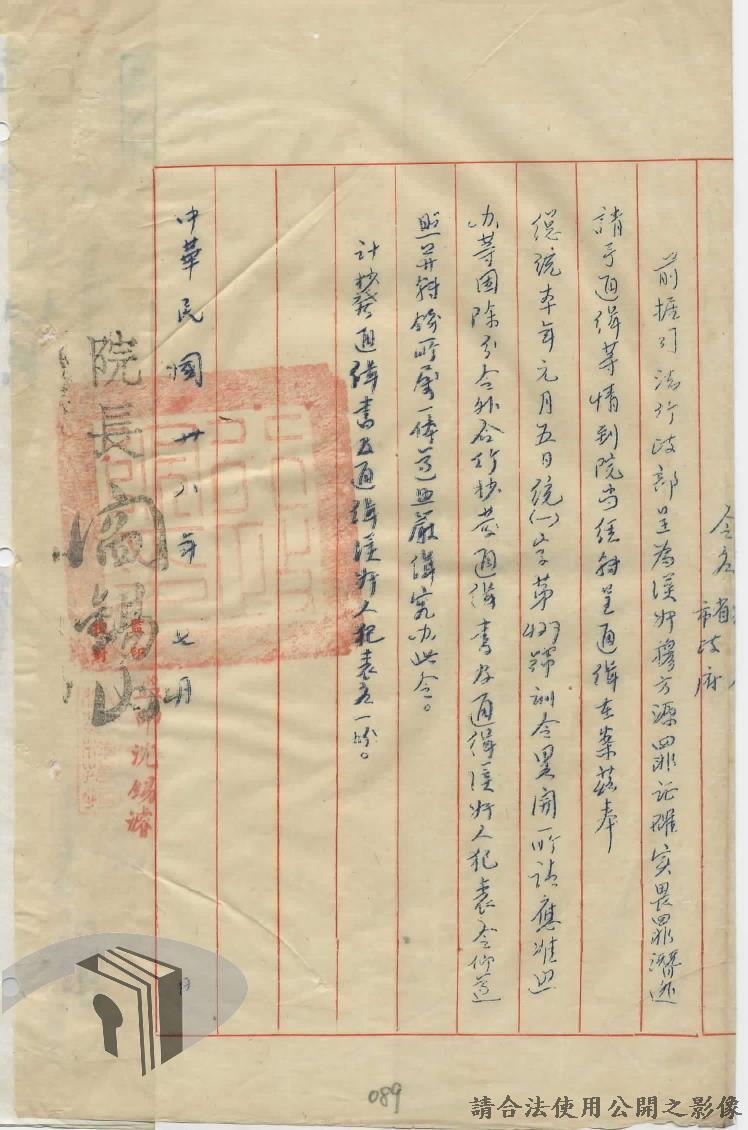 令各省市政府
前据司法行政部呈為漢奸穆方源罪証確实畏罪潛逃
請予通緝等情到院当經轉呈通緝在案茲奉
總統本年元月五日統(一)字第439號訓令畧開所請應准照
办等因除分令外合行抄发通緝書及通緝漢奸人犯表令仰遵
照并轉飭所屬一体遵照嚴緝究办此令。
計抄發通緝書及通緝漢奸人犯表各一份。
中華民國卅八年七月 日
院長閻錫山
監印
沈錫濬
089
請合法使用公開之影像